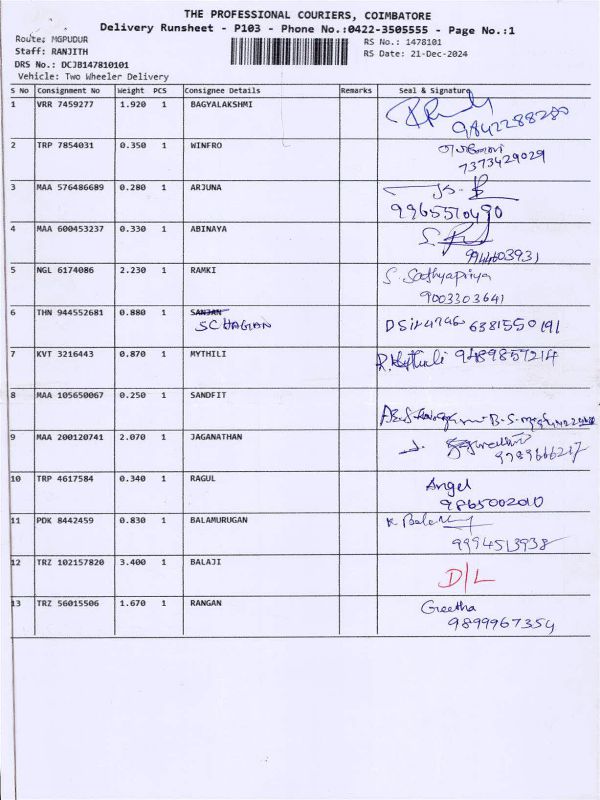 THE PROFESSIONAL COURIERS, COIMBATORE
Delivery Runsheet - P103 - Phone No.:0422-3505555 - Page No.:1
Route: MGPUDUR
RS No.: 1478101
Staff: RANJITH
RS Date: 21-Dec-2024
DRS No.: DCJB147810101
Vehicle: Two Wheeler Delivery
S No Consignment No Weight PCS Consignee Details Remarks Seal & Signature
1 VRR 7459277 1.920 1 BAGYALAKSHMI
9842288280
2 TRP 7854031 0.350 1 WINFRO
7373429029
3 MAA 576486689 0.280 1 ARJUNA
9965570490
4 MAA 600453237 0.330 1 ABINAYA
5 NGL 6174086 2.230 1 RAMKI S. Sathyapriya
9003303641
6 THN 944552681 0.880 1 SANJAN
6381550191
7 KVT 3216443 0.870 1 MYTHILI R. Mythili 9489857214
8 MAA 105650067 0.250 1 SANDFIT
9 MAA 200120741 2.070 1 JAGANATHAN
9789666217
10 TRP 4617584 0.340 1 RAGUL Angel
9865002010
11 PDK 8442459 0.830 1 BALAMURUGAN
9994513938
12 TRZ 102157820 3.400 1 BALAJI D/L
13 TRZ 56015506 1.670 1 RANGAN Greetha
9899967354